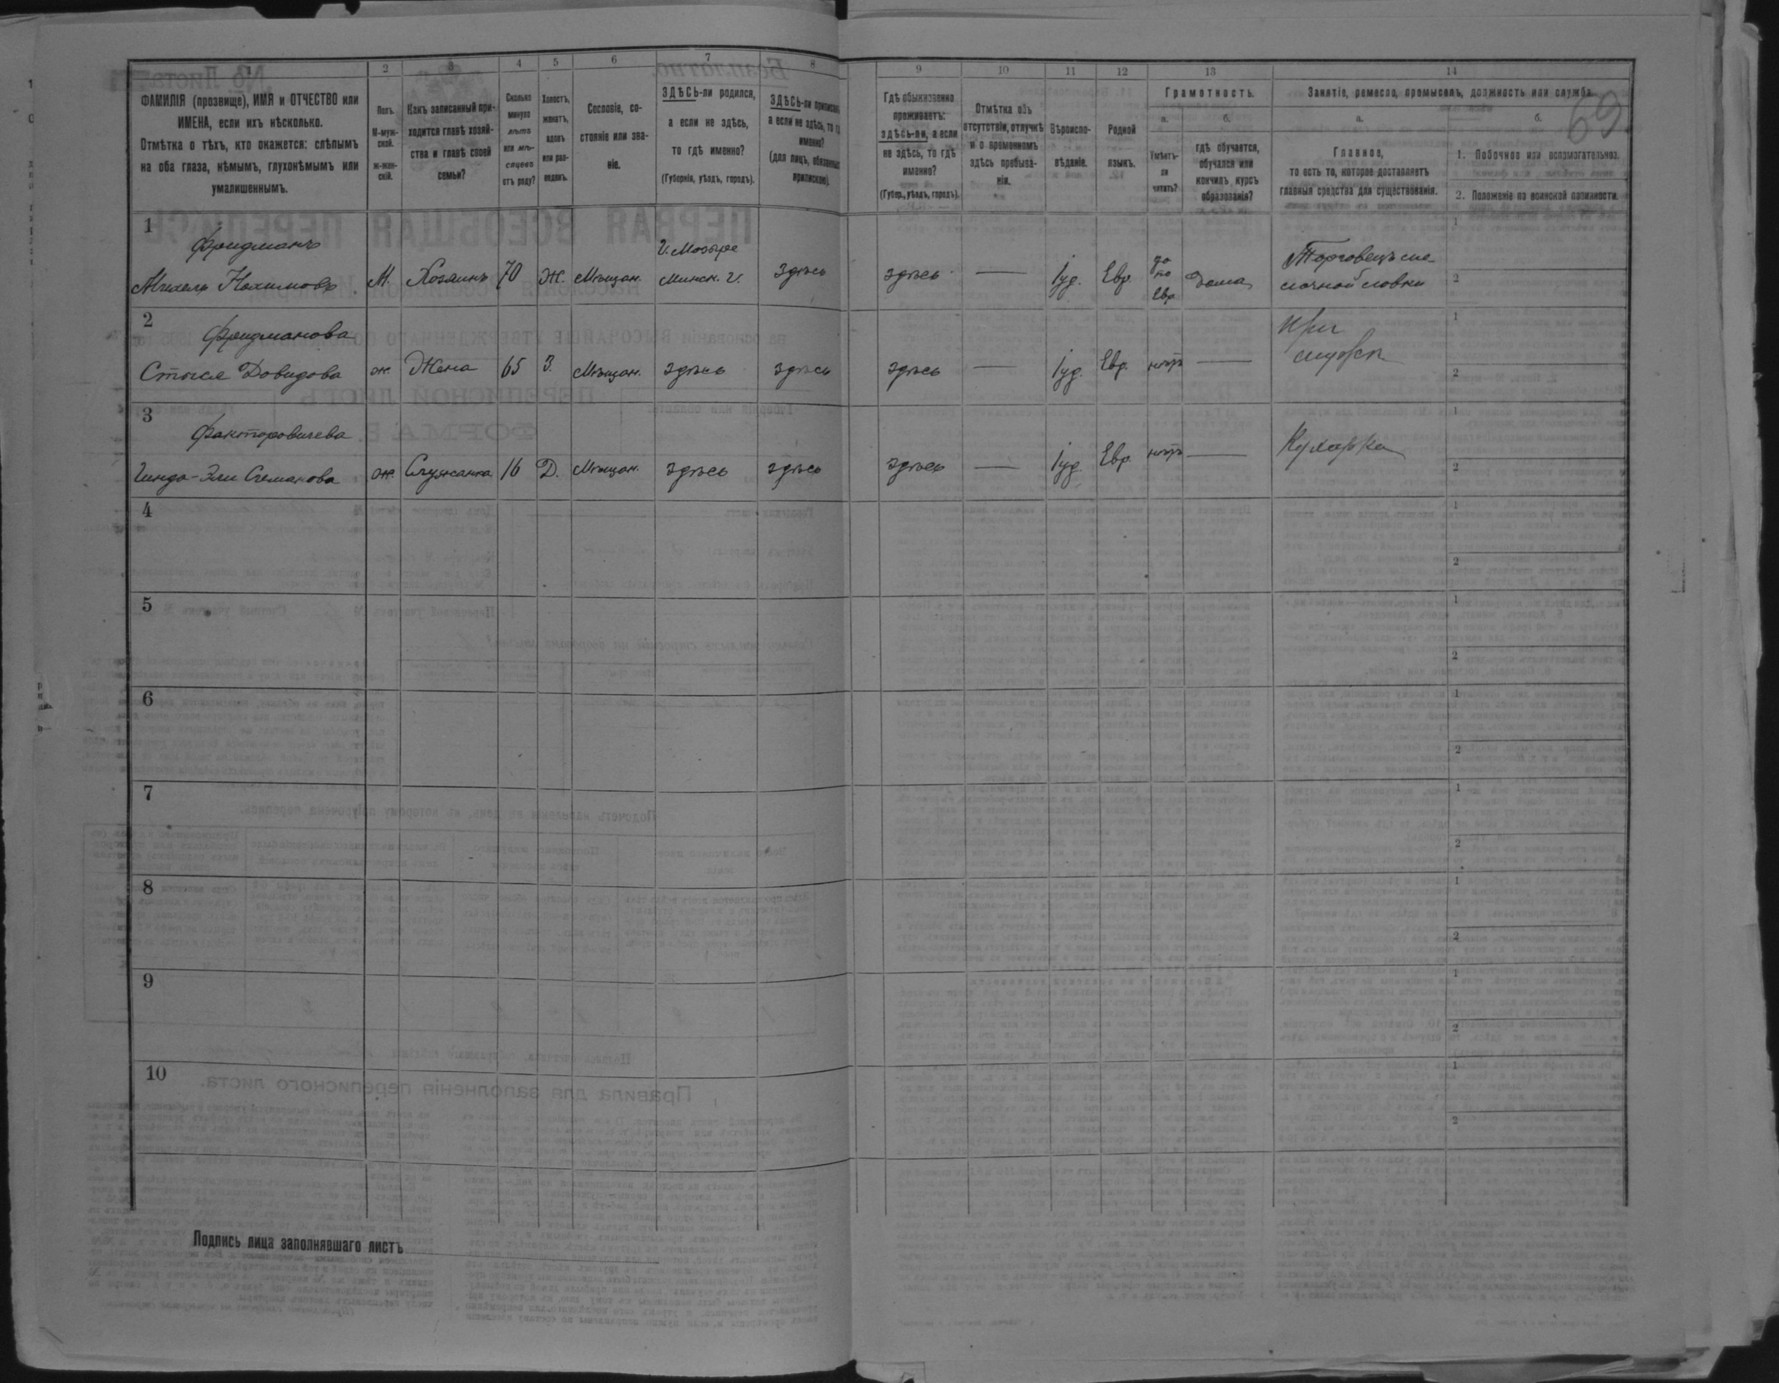 1
2
3
4
5
6
7
8
9
10
11
12
13
14
69
ФАМИЛІЯ (прозвище), ИМЯ и ОТЧЕСТВО или
ИМЕНА, если ихъ нѣсколько.
Отмѣтка о тѣхъ, кто окажется: слѣпымъ
на оба глаза, нѣмымъ, глухонѣмымъ или
умалишеннымъ.
Полъ.
М-муж-
ской.
ж-жен-
скій.
Какъ записанный при-
ходится главѣ хозяй-
ства и главѣ своей
семьи?
Сколько
минуло
лѣтъ
или мѣ-
сяцевъ
отъ роду?
Холостъ,
женатъ,
вдовъ
или раз-
веденъ.
Сословіе, со-
стояніе или зва-
ніе.
ЗДѢСЬ-ли родился,
а если не здѣсь,
то гдѣ именно?
(Губернія, уѣздъ, городъ).
ЗДѢСЬ-ли приписанъ,
а если не здѣсь, то гдѣ
именно?
(для лицъ, обязанныхъ
припискою).
Гдѣ обыкновенно
проживаетъ:
здѣсь-ли, а если
не здѣсь, то гдѣ
именно?
(Губер., уѣздъ, городъ).
Отмѣтка объ
отсутствіи, отлучкѣ
и о временномъ
здѣсь пребыва-
ніи.
Вѣроиспо-
вѣданіе.
Родной
языкъ.
Грамотность.
а.
Умѣетъ-
ли
читать?
б.
гдѣ обучается,
обучался или
кончилъ курсъ
образованія?
Занятіе, ремесло, промыселъ, должность или служба.
а.
Главное,
то есть то, которое доставляетъ
главныя средства для существованія.
б.
1. Побочное или вспомогательное.
2. Положеніе по воинской повинности.
1
Фридманъ
Михель Нохимовъ
М.
Хозяинъ
70
Ж.
Мѣщан.
Г. Мозыре
Минск. г.
здѣсь
здѣсь
—
Іуд.
Евр.
да
по
Евр
дома
Торговецъ
1
2
2
Фридманова
Стыся Довидова
ж
Жена
65
З.
Мѣщан.
здѣсь
здѣсь
здѣсь
—
Іуд.
Евр.
нѣтъ
—
При
1
2
3
Факторовичева
ж
Служанка
16
Д.
Мѣщан.
здѣсь
здѣсь
здѣсь
—
Іуд.
Евр
нѣтъ
—
Кухарка
1
2
4
1
2
5
1
2
6
1
2
7
1
2
8
1
2
9
1
2
10
1
2
Подпись лица заполнявшаго листъ